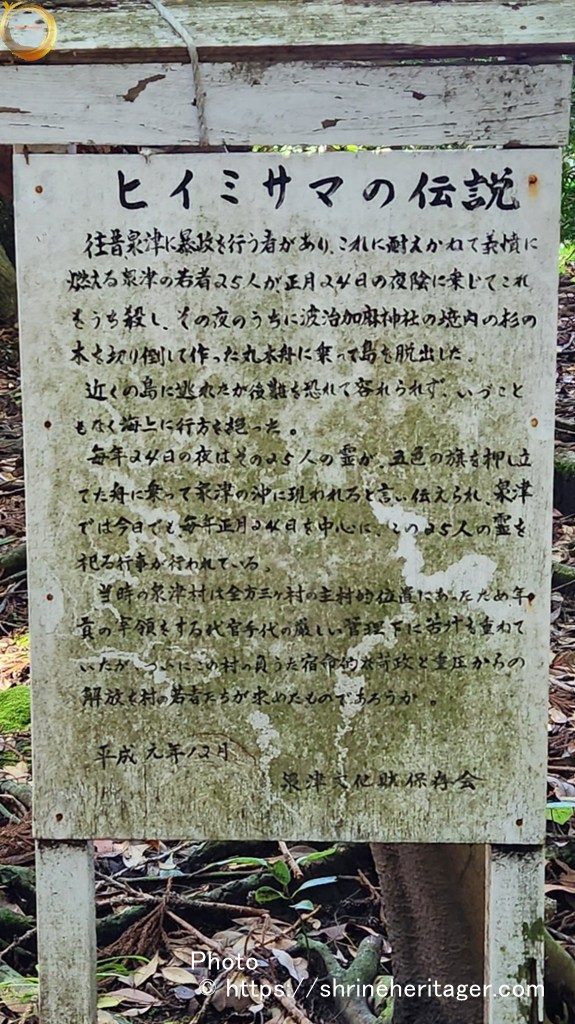 ヒイミサマの伝説
往昔泉津に暴政を行う者があり、これに耐えかねて義憤に
燃える泉津の若者25人が、正月24日の夜陰に乗じてこれ
をうち殺し、その夜のうちに波治加麻神社の境内の杉の
木を切り倒して作った丸木舟に乗って島を脱出した。
近くの島に逃れたが後難を恐れて容れられず、いづこと
もなく海上に行方を絶った。
毎年24日の夜はその25人の霊が、五色の旗を押し立
てた舟に乗って泉津の沖に現われると言い伝えられ、泉津
では今日でも、毎年正月24日を中心に、この25人の霊を
祀る行事が行われている。
当時の泉津村は全方三ヶ村の主村的位置にあったため年
貢の宰領をする代官手代の厳しい管理下に苦汁も重ねて
いたが、ついにこの村の負うた宿命的な苛政と重圧からの
解放を村の若者たちが求めたものであろうか。
平成元年12月
泉津文化財保存会
Photo
© https://shrineheritager.com/